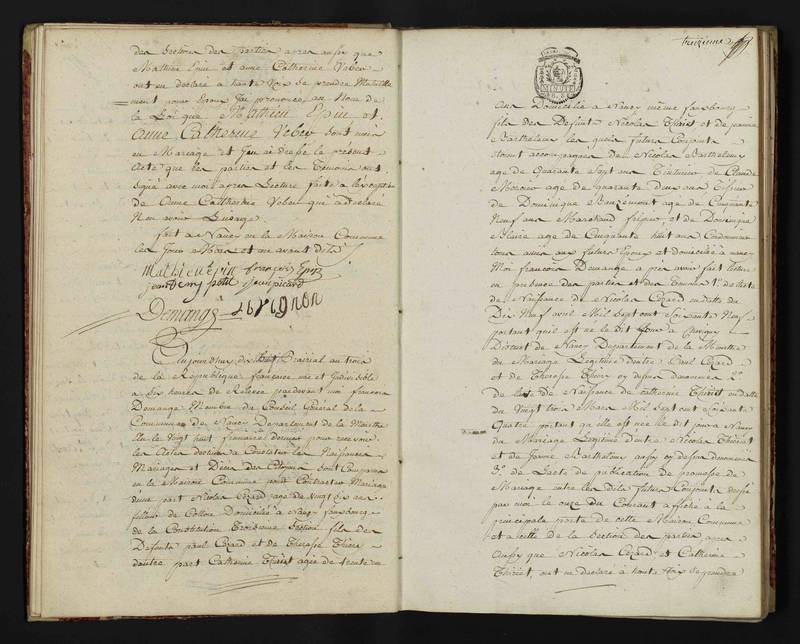 des Sections des Parties apres aussy que
Mathieu Epin et anne Catherine Vober
ont eu declaré a haute Voix se prendre Mutuelle
ment pour Epoux J'ai prononcé au Nom de
la Loi que Mathieu Epin et
anne Catherine Vober sont unis
en Mariage et J'en ai dressé le présent
Acte que les parties et les Temoins ont
signé avec moi apres Lecture faite a l'exception
de Anne Catherine Vober qui a declaré
Non avoir L'usage
fait a Nancy en la Maison Commune
les Jour Mois et an avant dits
Mathieu Epin françois Epin
jean petit Jean picard
Demange
Aujourdhuy dix huit Prairial an trois
de la Republique française une et Indivisible
a six heures de Relevée pardevant moi francois
Demange Membre du Conseil General de la
Commune de Nancy Departement de la Meurthe
élu le Vingt huit frimaire dernier pour recevoir
les Actes destinés a Constater les Naissances
Mariages et Décès des Citoyens sont Comparus
en la Maison Commune pour Contracter Mariage
d'une part Nicolas Cézard agé de Vingt six ans
fileur de Cotton Domicilié à Nancy faubourg
de la Constitution Troisieme Section fils des
Defunts paul Cezard et de Therese Thiery
d'autre part Catherine Thiriet agée de trente un
treizieme
MINUTE
ans Domiciliée a Nancy même faubourg
fille des Defunts Nicolas Thiriet et de Jeanne
Barthelemy les quels futurs Conjoints
etoient accompagnés de Nicolas Barthelemy
agé de Quarante Sept ans Teinturier de Claude
Mercier agé de quarante deux ans Tisseur
de Dominique Bauzemont agé de Cinquante
Neuf ans Marchand fripier et de Dominique
agé de Cinquante huit ans Cordonnier
tous amis aux futurs Epoux et domiciliés a nancy
Moi francois Demange apres avoir fait lecture
en presence des parties et des Temoins 1° de l'acte
de Naissance de Nicolas Cezard en datte du
Dix Neuf avril Mil Sept cent Soixante Neuf
portant qu'il est né le dit jour a
District de Nancy Departement de la Meurthe
du Mariage Legitime d'entre Paul Cezard
et de Therese Thiery cy dessus denommés 2°
de l'acte de Naissance de catherine Thiriet en datte
du Vingt trois Mars Mil Sept cent Soixante
Quatre portant qu'elle est née le dit jour a Nancy
du Mariage Legitime d'entre Nicolas Thiriet
et de Jeanne Barthelemy aussy cy dessus denommés
3° de l'acte de publication de promesse de
Mariage entre les dits futurs Conjoints dressé
par moi le onze du Courant affiché a la
principale porte de cette Maison Commune
et a celle de la Section des parties apres
Aussy que Nicolas Cezard et Catherine
Thiriet, ont eu declaré a haute Voix se prendre